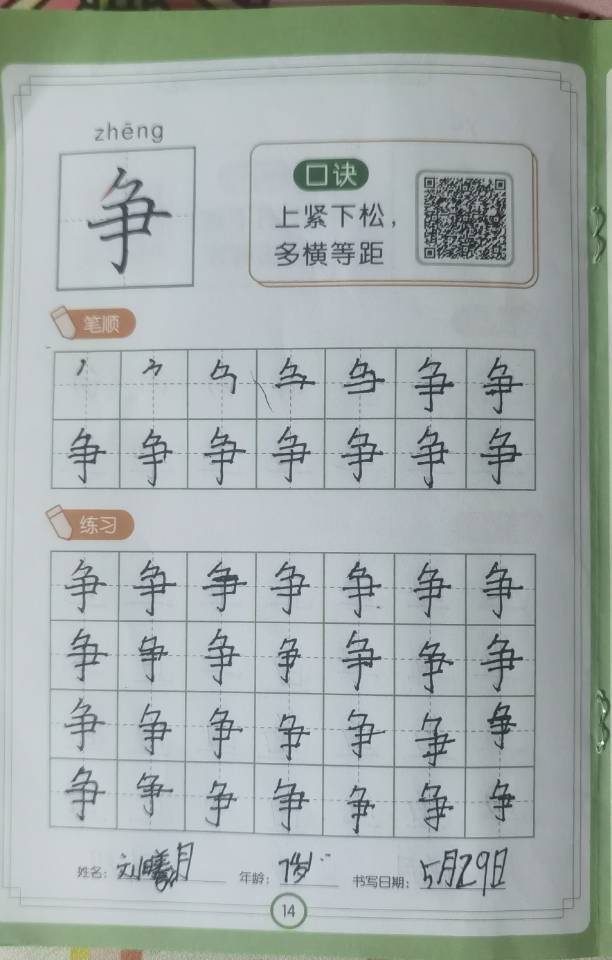 zhēng
争
口诀
上紧下松，
多横等距
笔顺
争 争
争 争 争 争 争 争 争
练习
争 争 争 争 争 争 争
争 争 争 争 争 争 争
争 争 争 争 争 争 争
争 争 争 争 争 争 争
姓名：刘曦月 年龄：7岁 书写日期：5月29日
14